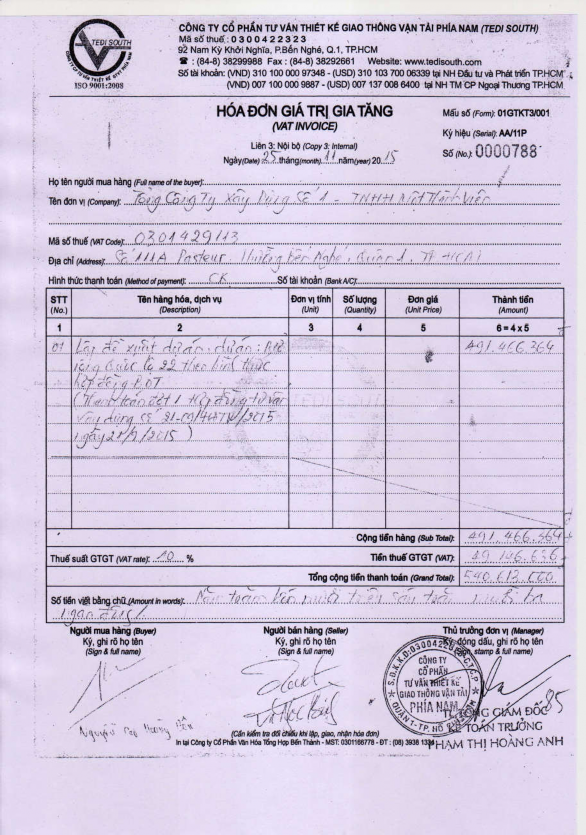 TEDI SOUTH
ISO 9001:2008
CÔNG TY CỔ PHẦN TƯ VẤN THIẾT KẾ GIAO THÔNG VẬN TẢI PHÍA NAM (TEDI SOUTH)
Mã số thuế : 0300422323
92 Nam Kỳ Khởi Nghĩa, P.Bến Nghé, Q.1, TP.HCM
☎ : (84-8) 38299988 Fax : (84-8) 38292661 Website: www.tedisouth.com
Số tài khoản: (VND) 310 100 000 97348 - (USD) 310 103 700 06339 tại NH Đầu tư và Phát triển TP.HCM
(VND) 007 100 000 9887 - (USD) 007 137 008 6400 tại NH TM CP Ngoại Thương TP.HCM
HÓA ĐƠN GIÁ TRỊ GIA TĂNG
(VAT INVOICE)
Mẫu số (Form): 01GTKT3/001
Ký hiệu (Serial): AA/11P
Số (No.): 0000788
Liên 3: Nội bộ (Copy 3: Internal)
Ngày(Date) 25 tháng(month) 11 năm(year) 2015
Họ tên người mua hàng (Full name of the buyer):
Tên đơn vị (Company): Tổng Công Ty Xây Dựng Số 1 - TNHH Một Thành Viên
Mã số thuế (VAT Code): 0301429113
Địa chỉ (Address): Số 111A Pasteur, Phường Bến Nghé, Quận 1, TP HCM
Hình thức thanh toán (Method of payment): CK Số tài khoản (Bank A/C):
STT (No.) Tên hàng hóa, dịch vụ (Description) Đơn vị tính (Unit) Số lượng (Quantity) Đơn giá (Unit Price) Thành tiền (Amount)
1 2 3 4 5 6 = 4 x 5
01 Lập đề xuất dự án, dự án: Mở 491.466.364
rộng Quốc lộ 22 theo hình thức
hợp đồng BOT
(Thanh toán đợt 1 Hợp đồng tư vấn
xây dựng số
Cộng tiền hàng (Sub Total): 491.466.364
Thuế suất GTGT (VAT rate): 10 % Tiền thuế GTGT (VAT): 49.146.636
Tổng cộng tiền thanh toán (Grand Total): 540.613.000
Số tiền viết bằng chữ (Amount in words): Năm trăm bốn mươi triệu sáu trăm mười ba
ngàn đồng
Người mua hàng (Buyer) Người bán hàng (Seller) Thủ trưởng đơn vị (Manager)
Ký, ghi rõ họ tên Ký, ghi rõ họ tên Ký, đóng dấu, ghi rõ họ tên
(Sign & full name) (Sign & full name) (Sign, stamp & full name)
CÔNG TY
CỔ PHẦN
TƯ VẤN THIẾT KẾ
GIAO THÔNG VẬN TẢI
PHÍA NAM
TỔNG GIÁM ĐỐC
KẾ TOÁN TRƯỞNG
PHẠM THỊ HOÀNG ANH
(Cần kiểm tra đối chiếu khi lập, giao, nhận hóa đơn)
In tại Công ty Cổ Phần Văn Hóa Tổng Hợp Bến Thành - MST: 0301166778 - ĐT : (08) 3938